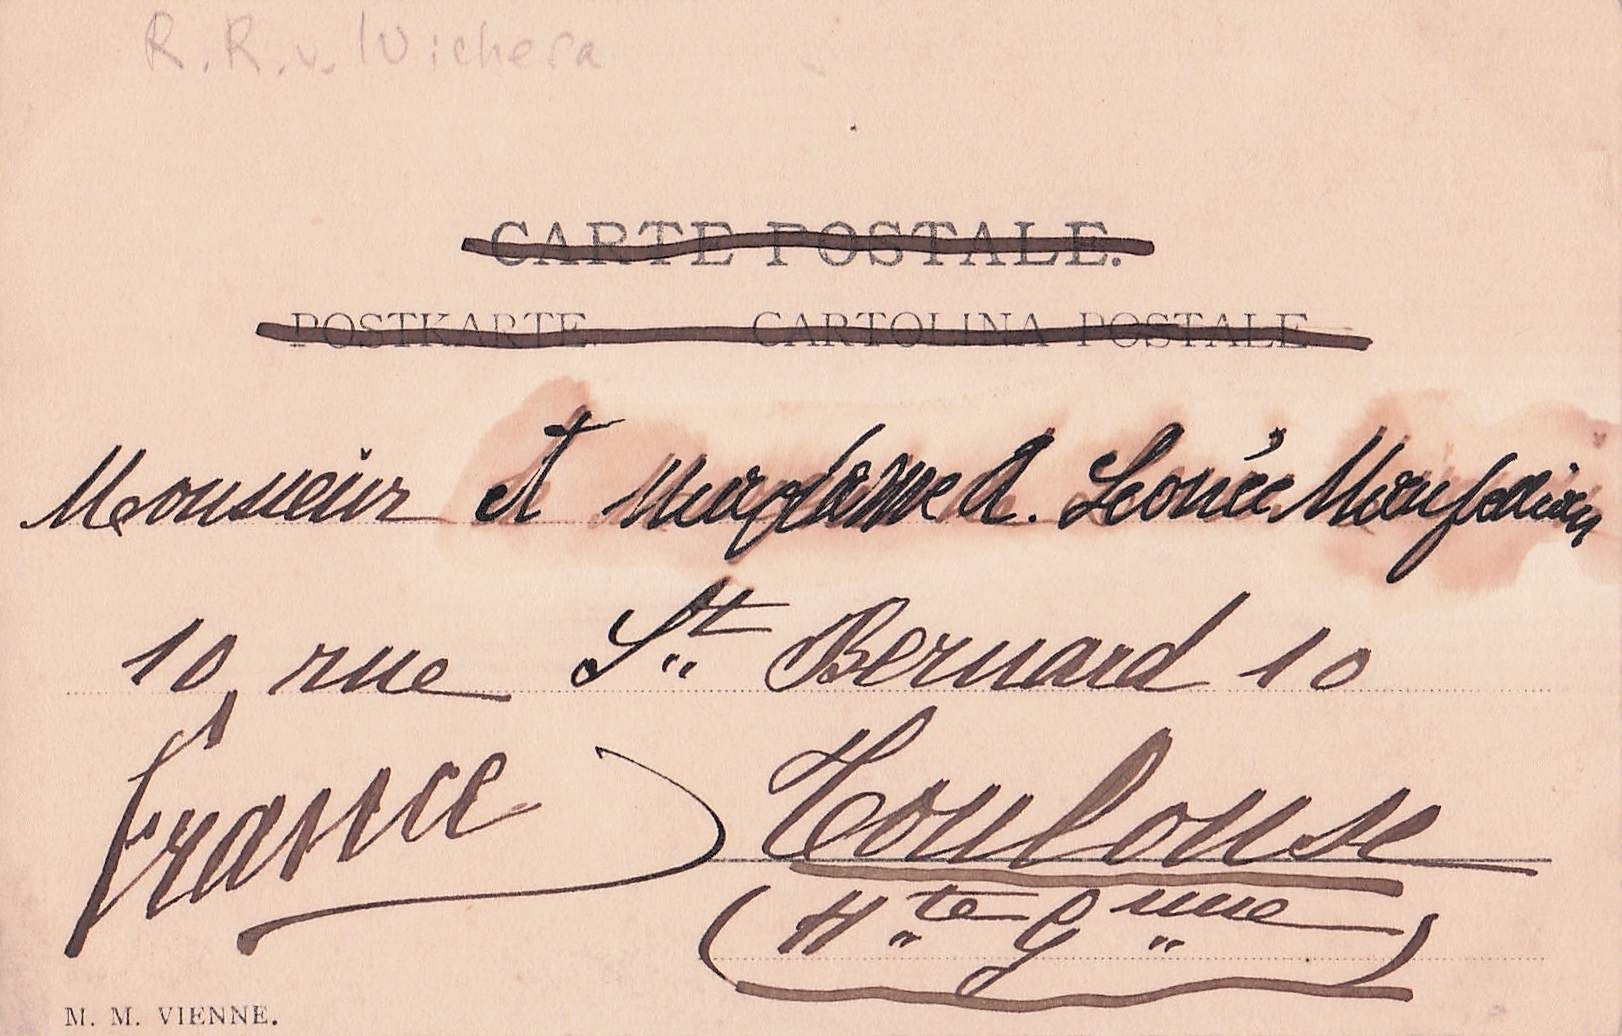 R. R. v. Wichera
CARTE POSTALE.
POSTKARTE CARTOLINA POSTALE
Monsieur et Madame A. Léonée
10, rue St Bernard 10
France
Toulouse
(Hte Gnne)
M. M. VIENNE.